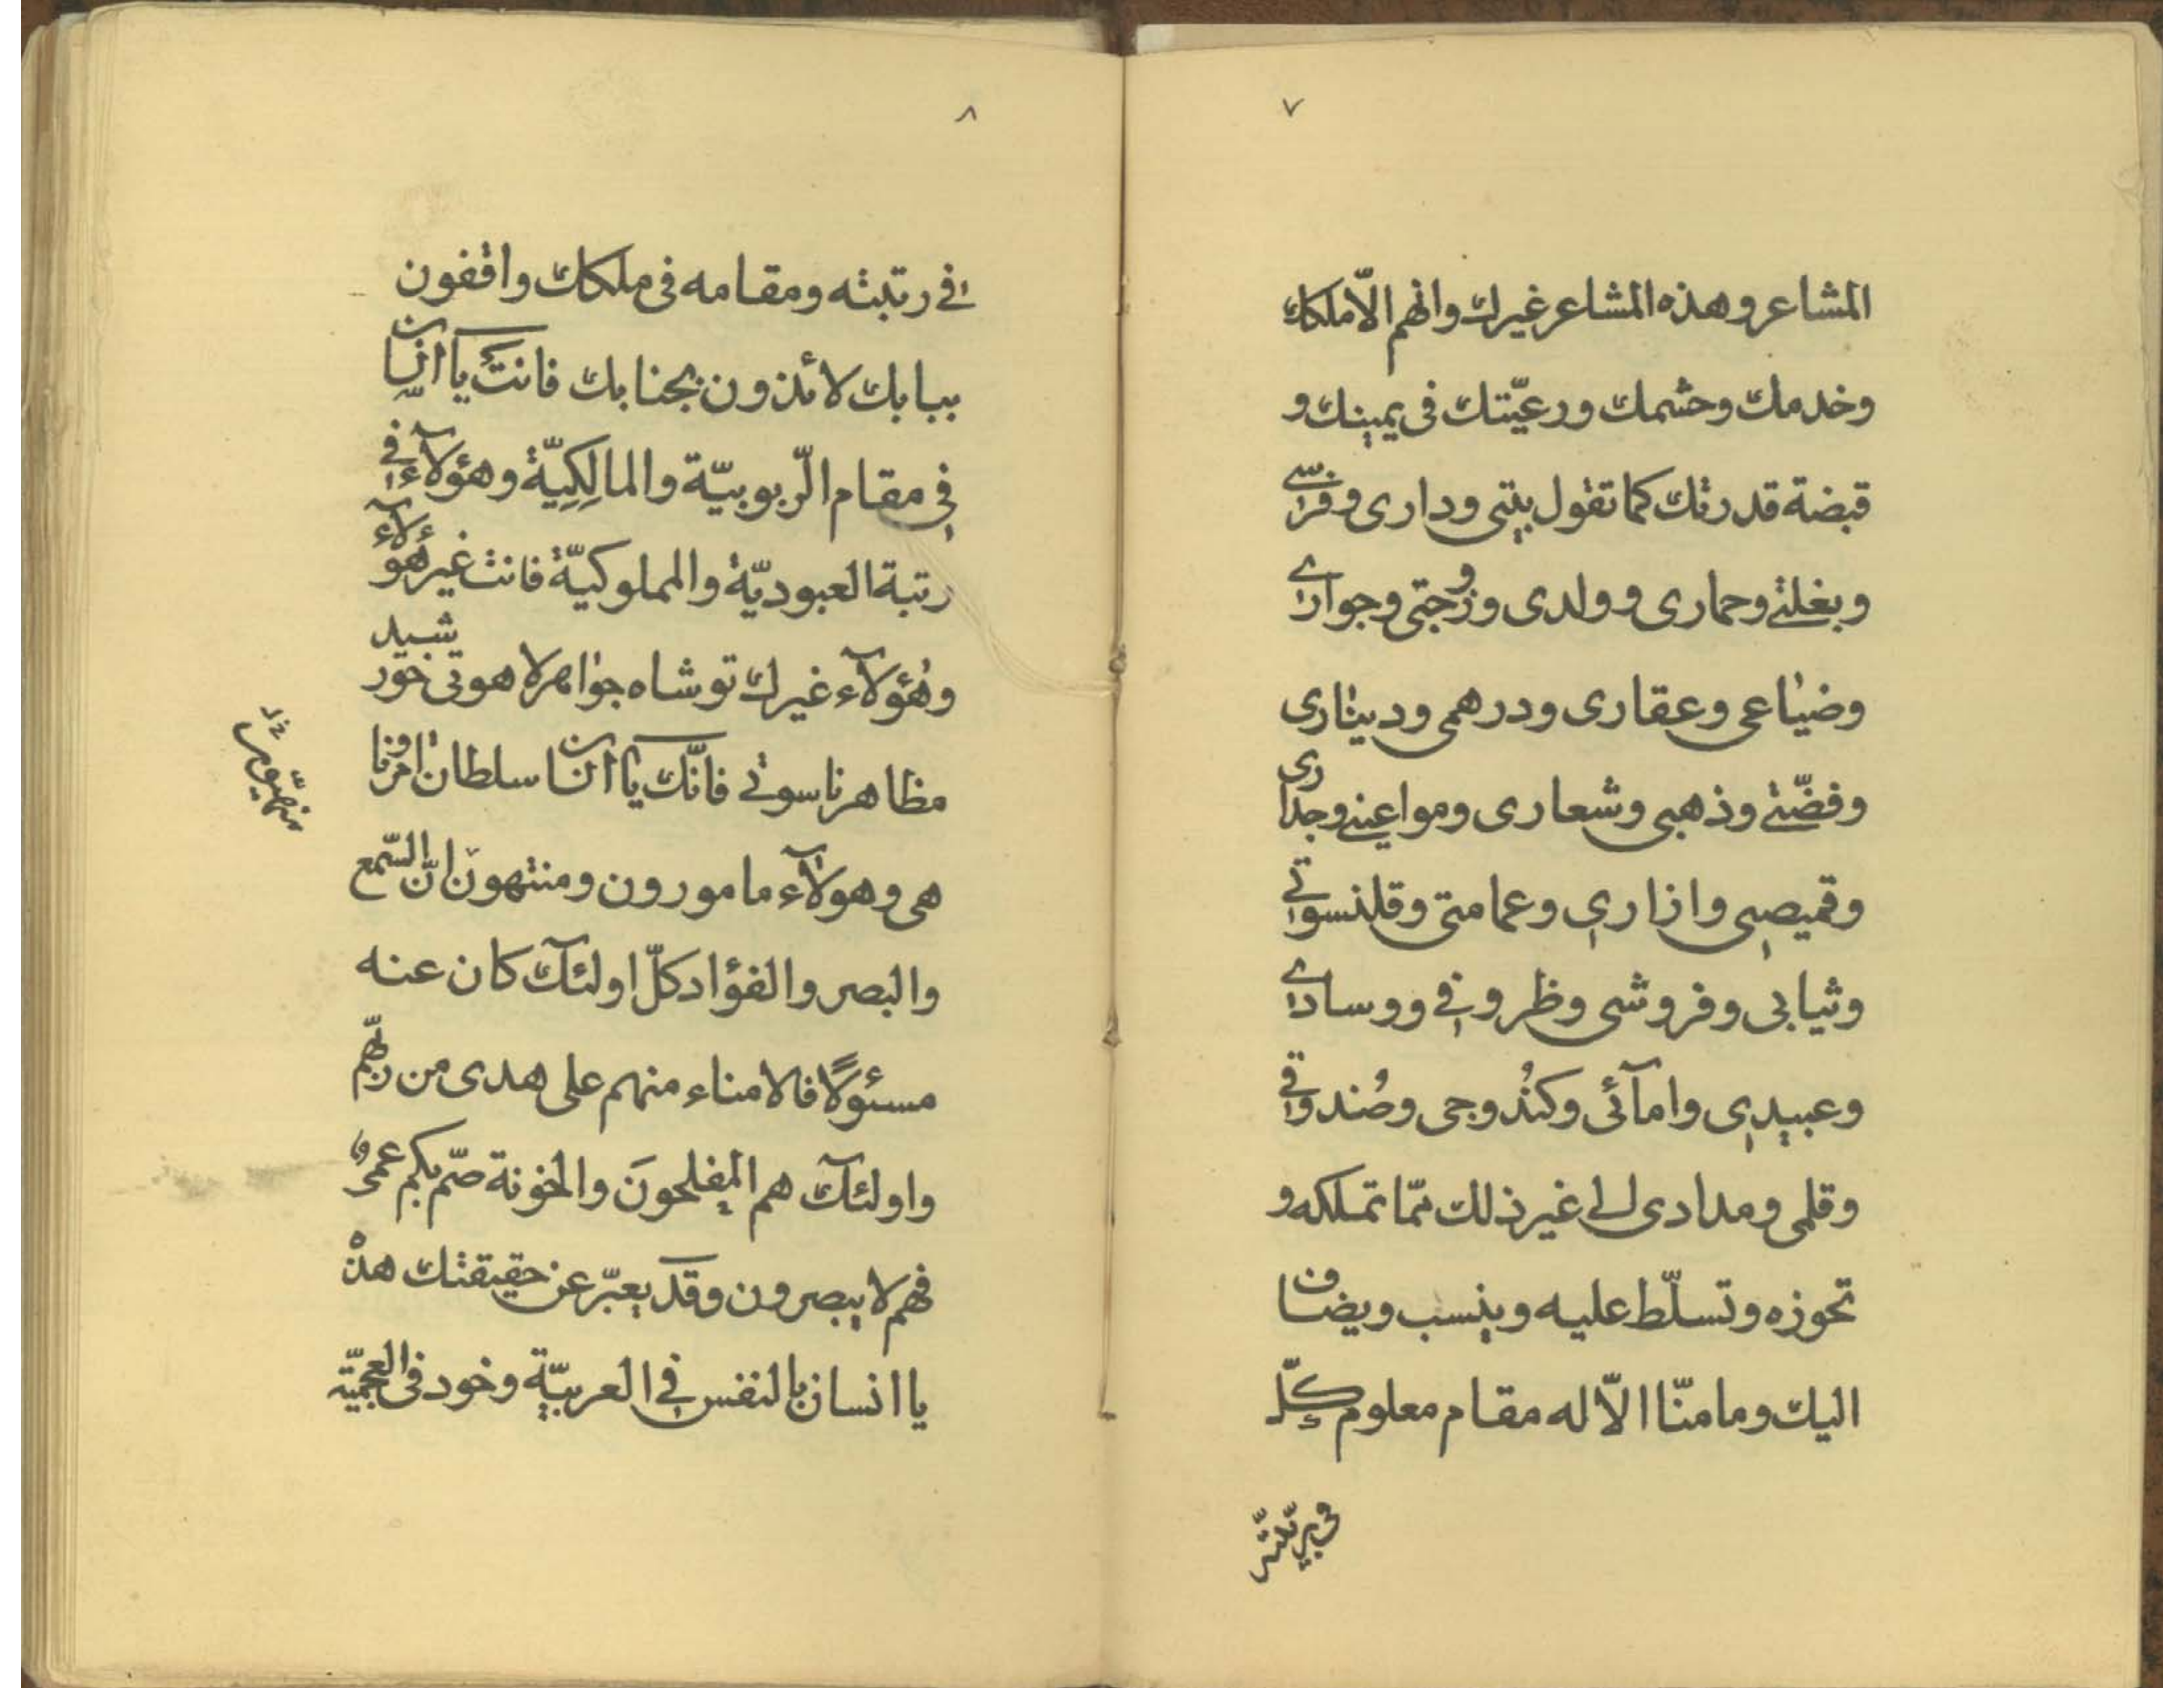 ٧
المشاعر وهذه المشاعر غيرك وانهم الّا ملكك
وخدمك وحشمك ورعيّتك فى يمينك و
قبضة قدرتك كما تقول بيتى ودارى وفرسى
وبغلتى وحمارى وولدى وزوجتى وجوارى
وضياعى وعقارى ودرهمى ودينارى
وفضّتى وذهبى وشعارى ومواعينى وجدارى
وقميصى وازارى وعمامتى وقلنسوتى
وثيابى وفروشى وظروفى ووسادى
وعبيدى وامآئى وكُندوجى وصُندوقى
وقلمى ومدادى الى غير ذلك ممّا تملكه و
تحوزه وتسلّط عليه وينسب ويضاف
اليك وما منّا الّا له مقام معلوم كلّ
فى رتبته
٨
فى رتبته ومقامه فى ملكك واقفون
ببابك لائذون بجنابك فانتَ يا انسان
فى مقام الرّبوبيّة والمالِكِيّة وهؤلآء فى
رتبة العبوديّة والمملوكيّة فانت غير هؤلآء
وهُؤلآء غيرك تو شاه جواهر لاهوتى خورشيد
مظاهر ناسوتى فانّك يا انسان سلطان امر ونا
هى وهولآء مامورون ومنتهون انّ السّمع
والبصر والفؤاد كلّ اولئك كان عنه
مسئولًا فالامناء منهم على هدى من ربّهم
واولئك هم المفلحونَ والخونة صّم بكم عمىٌ
فهم لا يبصرون وقد يعبّر عن حقيقتك هذه
يا انسان بالنفس فى العربيّة وخود فى العجميّة